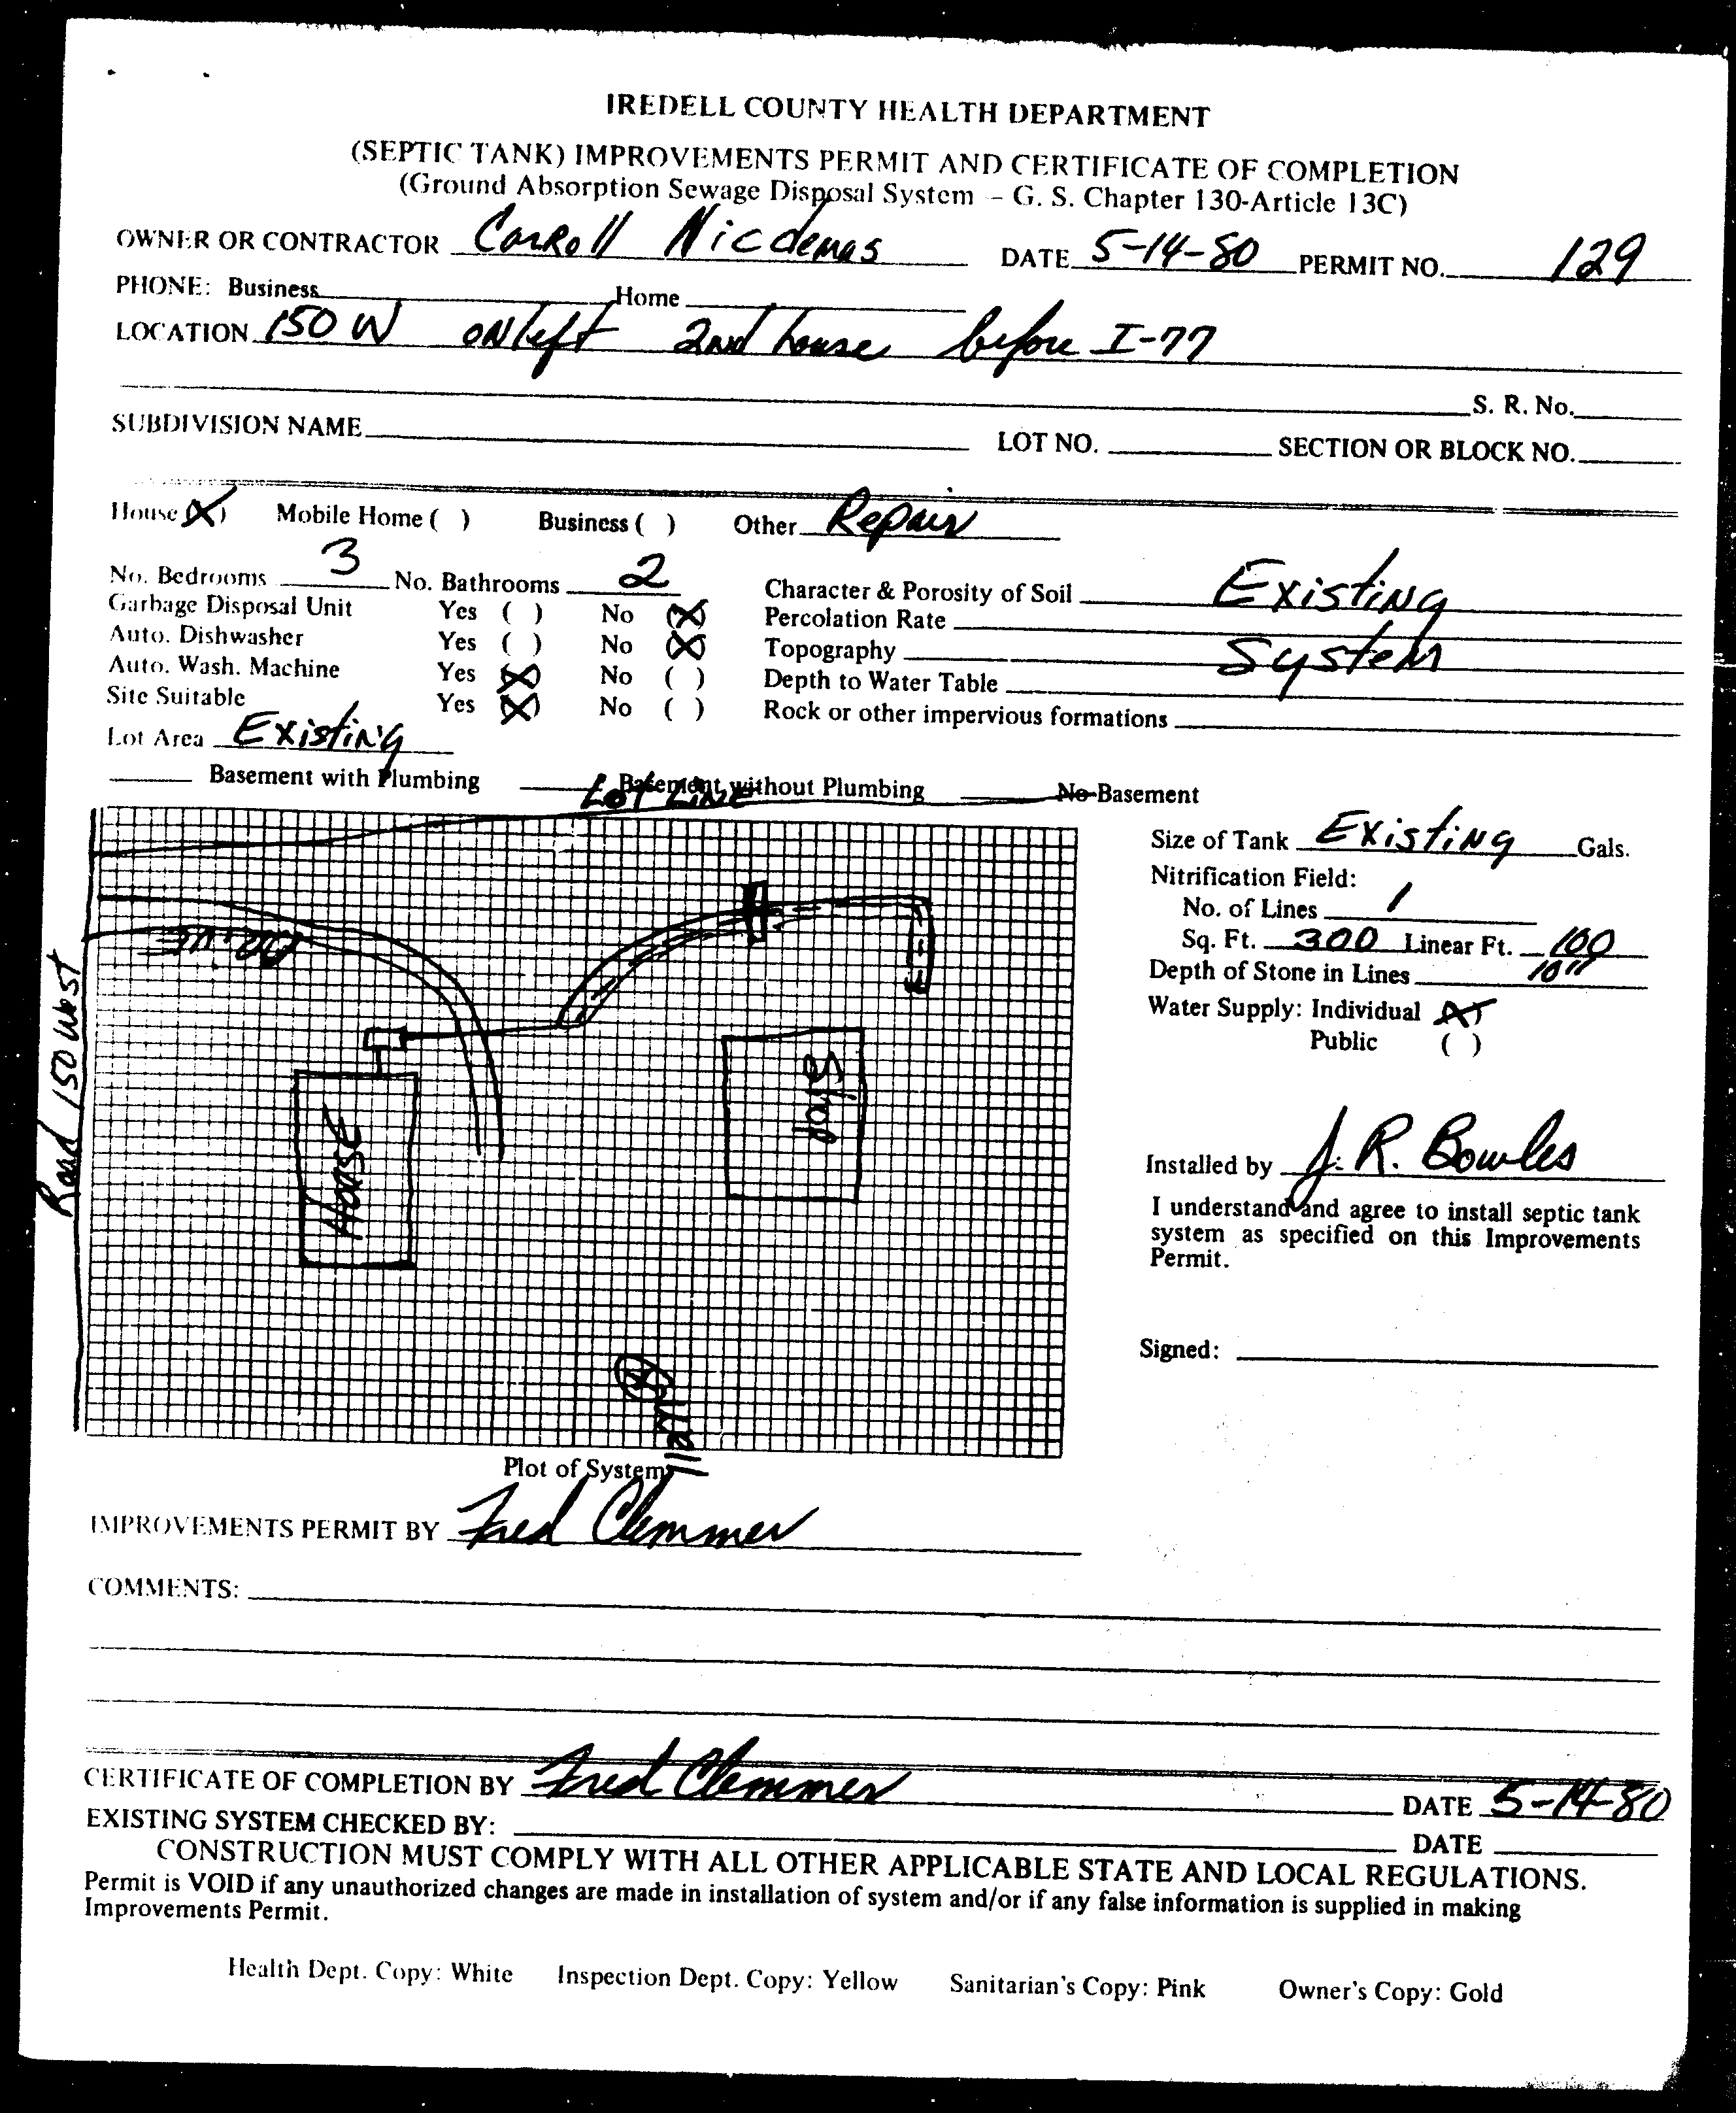 IREDELL COUNTY HEALTH DEPARTMENT
(SEPTIC TANK) IMPROVEMENTS PERMIT AND CERTIFICATE OF COMPLETION
(Ground Absorption Sewage Disposal System – G. S. Chapter 130-Article 13C)
OWNER OR CONTRACTOR Carroll Nicdemas DATE 5-14-80 PERMIT NO. 129
PHONE: Business Home
LOCATION 150 W ON left 2nd house before I-77
S. R. No.
SUBDIVISION NAME LOT NO. SECTION OR BLOCK NO.
House (X) Mobile Home ( ) Business ( ) Other Repair
No. Bedrooms 3 No. Bathrooms 2 Character & Porosity of Soil Existing
Garbage Disposal Unit Yes ( ) No (X) Percolation Rate
Auto. Dishwasher Yes ( ) No (X) Topography System
Auto. Wash. Machine Yes (X) No ( ) Depth to Water Table
Site Suitable Yes (X) No ( ) Rock or other impervious formations
Lot Area Existing
Basement with Plumbing Basement without Plumbing No Basement
Lot Line
Size of Tank Existing Gals.
Nitrification Field:
No. of Lines 1
Sq. Ft. 300 Linear Ft. 100
Depth of Stone in Lines 10"
Water Supply: Individual (X)
Public ( )
Drive
Road 150 West
House
Shop
Well
Installed by J. R. Bowles
I understand and agree to install septic tank
system as specified on this Improvements
Permit.
Signed:
Plot of System
IMPROVEMENTS PERMIT BY Fred Clemmer
COMMENTS:
CERTIFICATE OF COMPLETION BY Fred Clemmer DATE 5-14-80
EXISTING SYSTEM CHECKED BY: DATE
CONSTRUCTION MUST COMPLY WITH ALL OTHER APPLICABLE STATE AND LOCAL REGULATIONS.
Permit is VOID if any unauthorized changes are made in installation of system and/or if any false information is supplied in making
Improvements Permit.
Health Dept. Copy: White Inspection Dept. Copy: Yellow Sanitarian's Copy: Pink Owner's Copy: Gold